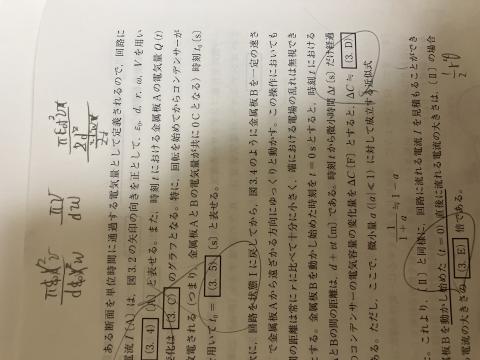 ある断面を単位時間に通過する電気量として定義されるので、回路に
電流 I〔A〕は、図3.2の矢印の向きを正として、ε₀, d, r, ω, V を用い
(3.4)〔A〕と表せる。また、時刻 t における金属板Aの電気量 Q(t)
化は (3.ウ) のグラフとなる。特に、回転を始めてからコンデンサーが
電される(つまり、金属板AとBの電気量が共に0Cとなる)時刻 t₀〔s〕
用いて t₀ = (3.5)〔s〕と表せる。
に、回路を状態Iに戻してから、図3.4のように金属板Bを一定の速さ
で金属板Aから遠ざかる方向にゆっくりと動かす。この操作においても
間の距離は常に r に比べて十分に小さく、端における電場の乱れは無視でき
とする。金属板Bを動かし始めた時刻を t=0sとすると、時刻 t における
とBの間の距離は、d+ut〔m〕である。時刻 t から微小時間 Δt〔s〕だけ経過
コンデンサーの電気容量の変化量を ΔC〔F〕とすると、ΔC≒ (3.D)
である。ただし、ここで、微量 a (|a|<1) に対して成立する近似式
1/(1+a) ≒ 1-a
これより、〔II〕と同様に、回路に流れる電流 I を見積もることができ
板Bを動かし始めた (t=0) 直後に流れる電流の大きさは、〔II〕の場合
電流の大きさの (3.E) 倍である。